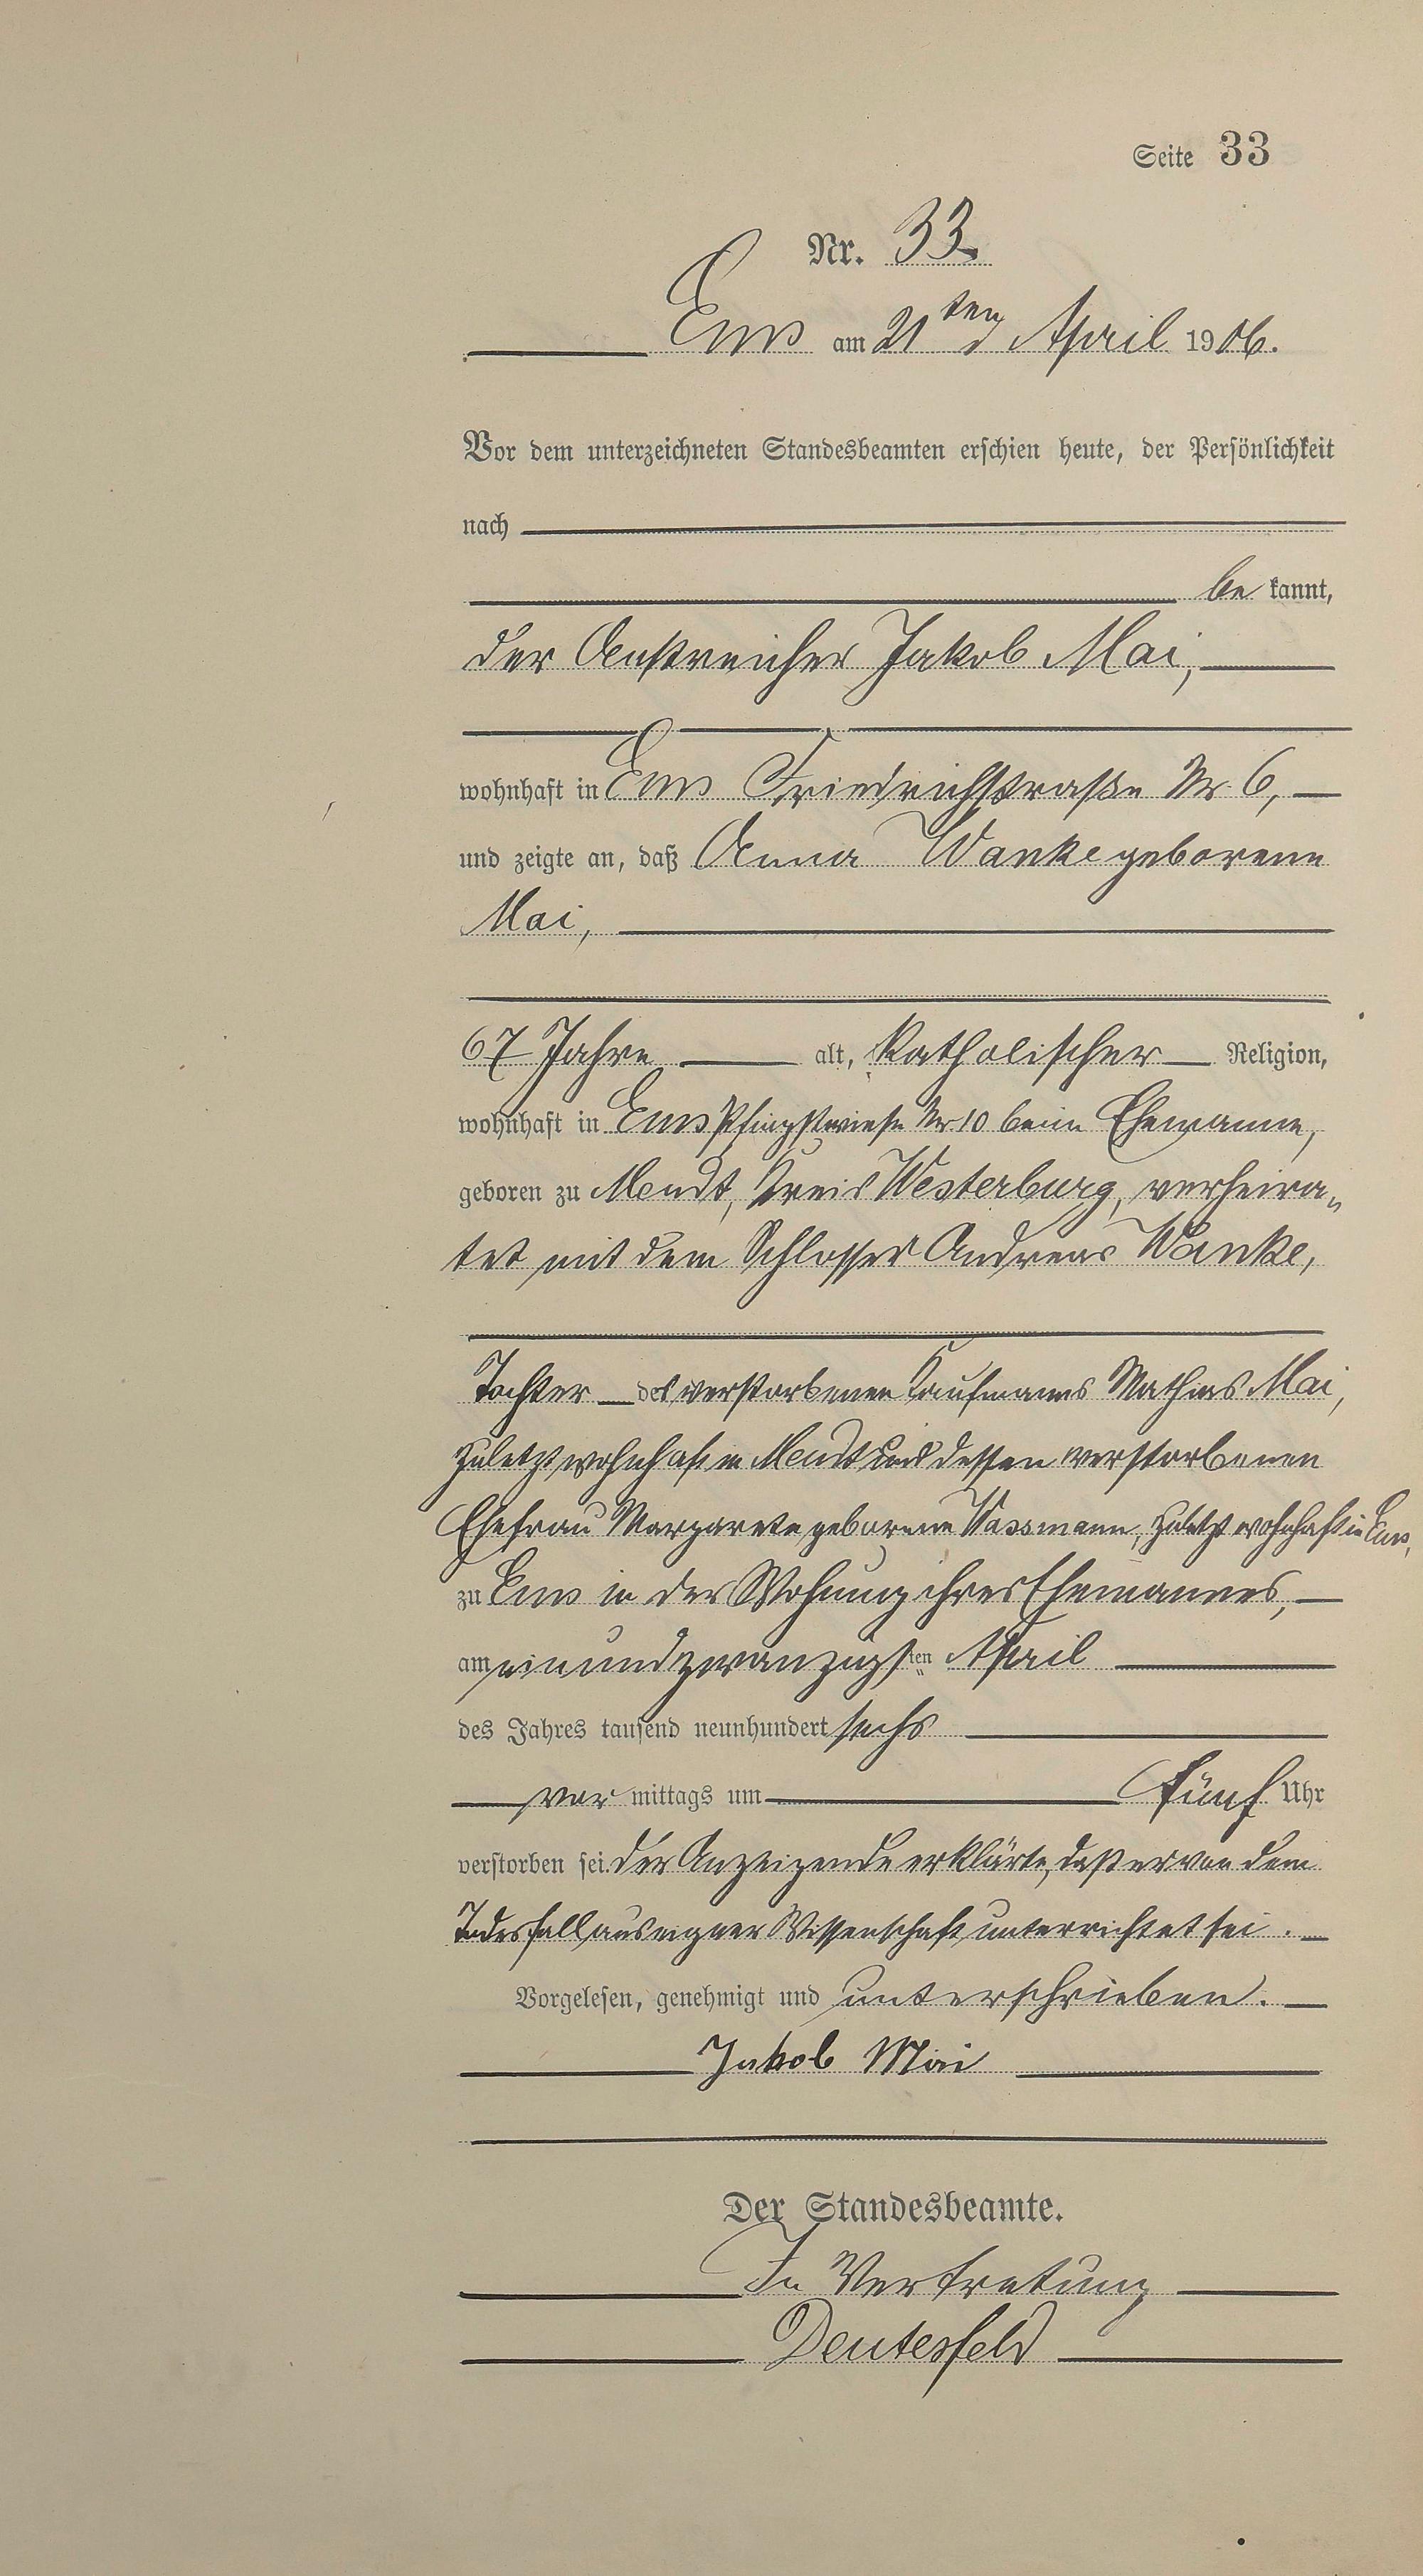 Seite 33
Nr. 33
Ems am 21ten April 1906.
Vor dem unterzeichneten Standesbeamten erschien heute, der Persönlichkeit
nach
be kannt,
der Anstreicher Jakob Mai,
wohnhaft in Ems Friedrichstraße Nr. 6,
und zeigte an, daß Anna Wanke geborene
Mai,
67 Jahre alt, katholischer Religion,
wohnhaft in Ems Pfingstwiese Nr 10 beim Ehemanne,
geboren zu Meudt, Kreis Westerburg, verheira„
tet mit dem Schlosser Andreas Wanke,
Tochter des verstorbenen Kaufmanns Mathias Mai,
zuletzt wohnhaft in Meudt und dessen verstorbenen
Ehefrau Margarete geborene Wassmann, zuletzt wohnhaft in Ems,
zu Ems in der Wohnung ihres Ehemannes,
am einundzwanzigsten April
des Jahres tausend neunhundert sechs
vor mittags um fünf Uhr
verstorben sei. Der Anzeigende erklärte, daß er von dem
Todesfall aus eigner Wissenschaft unterrichtet sei.
Vorgelesen, genehmigt und unterschrieben.
Jakob Mai
Der Standesbeamte.
In Vertretung
Deutesfeld